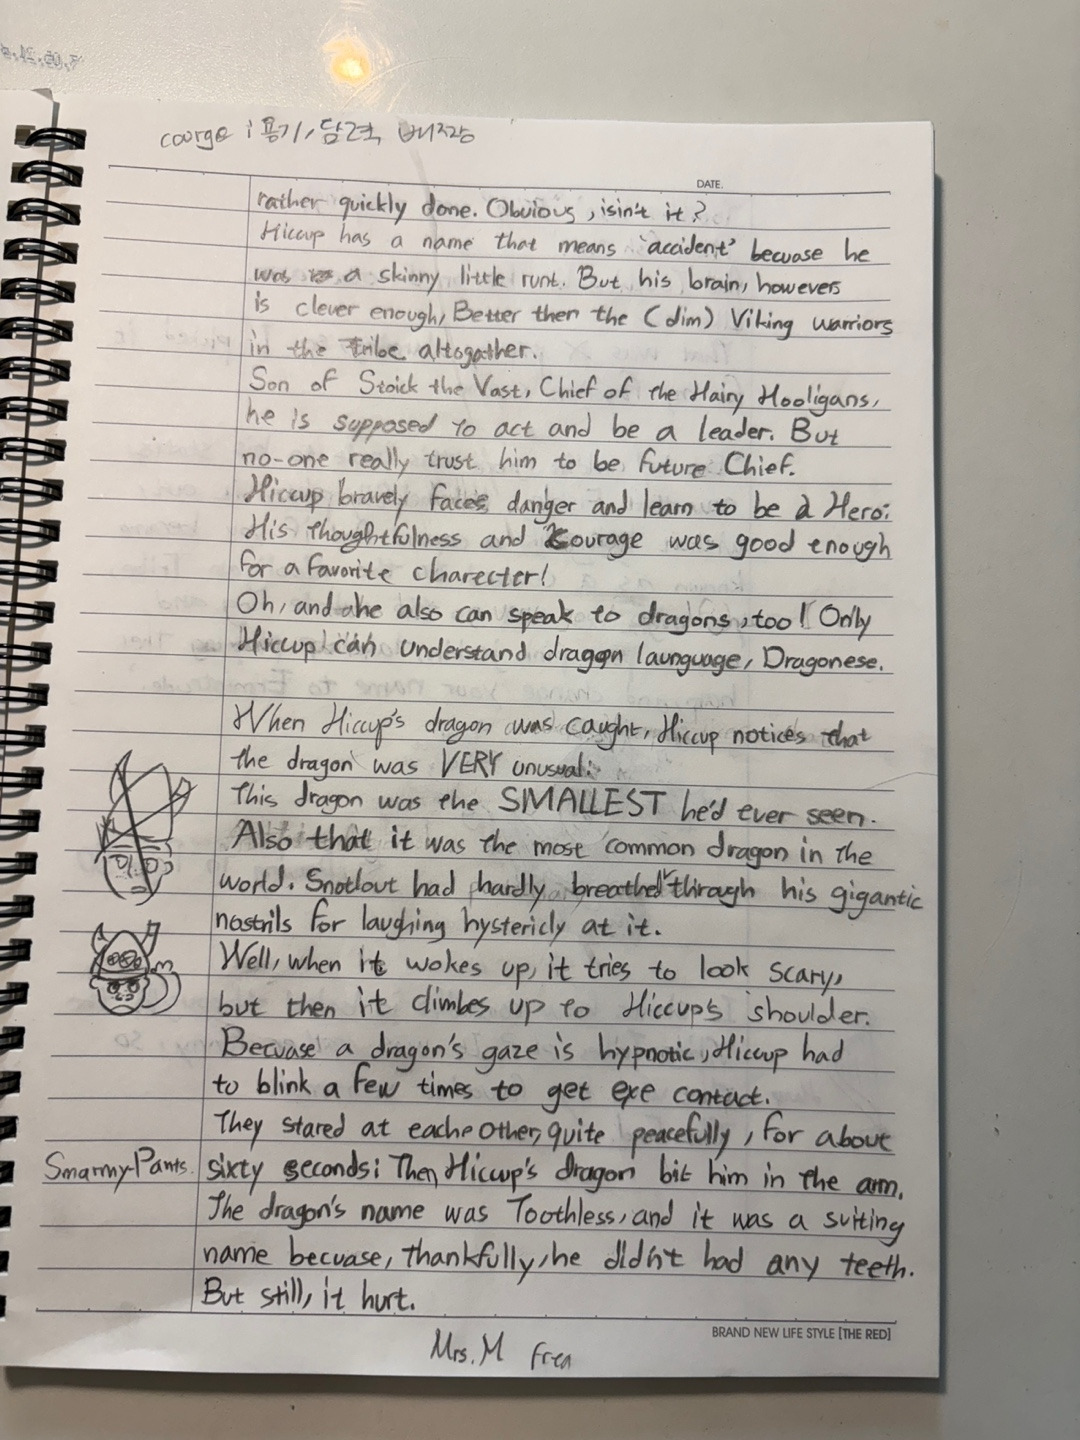 courge : 용기, 담력, 배짱
DATE.
rather quickly done. Obvious, isin't it?
Hiccup has a name that means 'accident' becuase he
was a skinny little runt. But his brain, however,
is clever enough, Better then the (dim) Viking warriors
in the Tribe altogather.
Son of Stoick the Vast, Chief of the Hairy Hooligans,
he is supposed to act and be a leader. But
no-one really trust him to be future Chief.
Hiccup bravely faces danger and learn to be a Hero.
His thoughtfulness and Courage was good enough
for a favorite charecter!
Oh, and ahe also can speak to dragons, too! Only
Hiccup can understand dragon launguage, Dragonese.
When Hiccup's dragon was caught, Hiccup notices that
the dragon was VERY unusual.
This dragon was the SMALLEST he'd ever seen.
Also that it was the most common dragon in the
world. Snotlout had hardly breathed through his gigantic
nostrils for laughing hystericly at it.
Well, when it wokes up, it tries to look scary,
but then it climbes up to Hiccup's shoulder.
Becuase a dragon's gaze is hypnotic, Hiccup had
to blink a few times to get eye contact.
They stared at eache other, quite peacefully, for about
Smarmy-Pants. sixty seconds. Then, Hiccup's dragon bit him in the arm.
The dragon's name was Toothless, and it was a suiting
name becuase, thankfully, he didn't had any teeth.
But still, it hurt.
BRAND NEW LIFE STYLE [THE RED]
Mrs. M